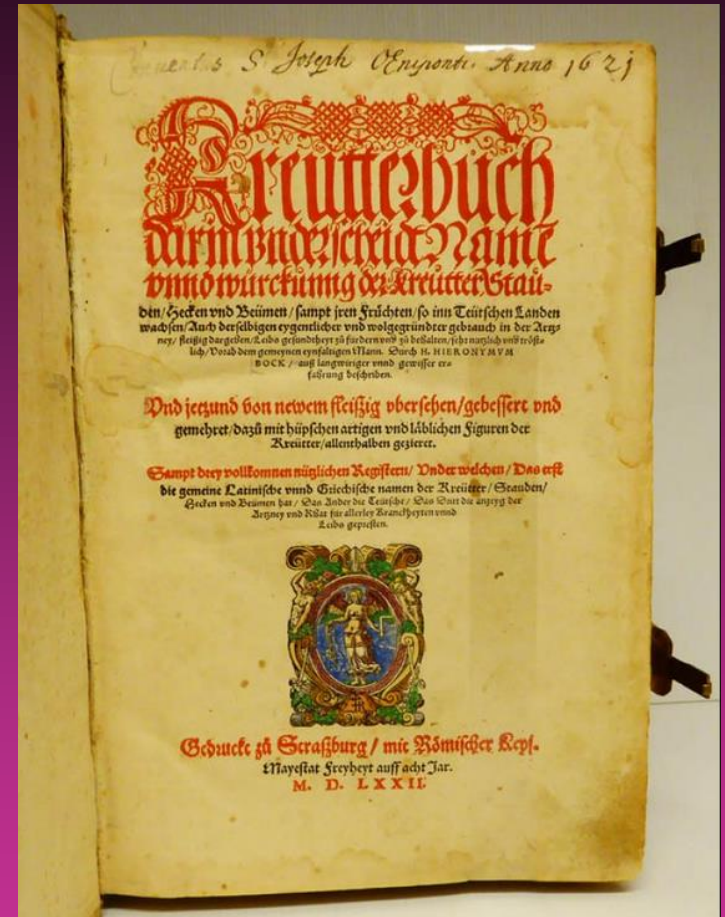 Conventus S. Josephi OEniponti Anno 1621
Kreütterbuch
darin vnderscheidt Name
vnnd würckung der Kreütter Stau-
den/Hecken vnd Beümen/sampt jren Früchten/so inn Teütschen Landen
wachsen/Auch derselbigen eygentlicher vnd wolgegründter gebrauch in der Artz-
ney/fleißig dargeben/Leibs gesundtheyt zů fürdern vnd zů behalten/sehr nutzlich vnd tröst-
lich/Vorab dem gemeynen eynfaltigen Mann. Durch H. HIERONYMVM
BOCK/auß langwiriger vnnd gewisser er-
fahrung beschriben.
Vnd jetzund von newem fleißig vbersehen/gebessert vnd
gemehret/dazů mit hüpschen artigen vnd läblichen Figuren der
Kreütter/allenthalben gezieret.
Sampt drey vollkomnen nützlichen Registern/Vnder welchen/Das erst
die gemeine Latinische vnnd Griechische namen der Kreütter/Stauden/
Hecken vnd Beümen hat/Das Ander die Teütsche/Das Dritt die anzeyg der
Artzney vnd Rhat für allerley Kranckheyten vnnd
Leibs gepresten.
Gedruckt zů Straßburg/mit Römischer Keys.
Mayestat Freyheyt auff acht Jar.
M. D. LXXII.